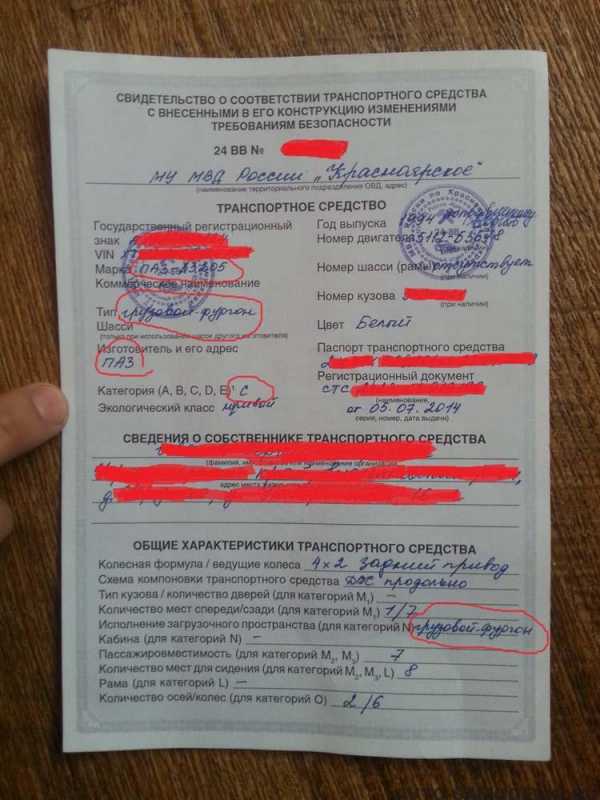 СВИДЕТЕЛЬСТВО О СООТВЕТСТВИИ ТРАНСПОРТНОГО СРЕДСТВА
С ВНЕСЕННЫМИ В ЕГО КОНСТРУКЦИЮ ИЗМЕНЕНИЯМИ
ТРЕБОВАНИЯМ БЕЗОПАСНОСТИ
24 ВВ №
МУ МВД России „Красноярское"
(наименование территориального подразделения ОВД, адрес)
ТРАНСПОРТНОЕ СРЕДСТВО
Государственный регистрационный
знак
VIN
Марка ПАЗ
Коммерческое наименование
Тип грузовой фургон
Шасси
(только при использовании шасси другого изготовителя)
Изготовитель и его адрес
ПАЗ
Категория (A, B, C, D, E)¹ C
Экологический класс
Год выпуска 1994
Номер двигателя
Номер шасси (рамы) отсутствует
Номер кузова
(при наличии)
Цвет Белый
Паспорт транспортного средства
Регистрационный документ
СТС
(наименование,
от 05.07.2014
серия, номер, дата выдачи)
СВЕДЕНИЯ О СОБСТВЕННИКЕ ТРАНСПОРТНОГО СРЕДСТВА
ОБЩИЕ ХАРАКТЕРИСТИКИ ТРАНСПОРТНОГО СРЕДСТВА
Колесная формула / ведущие колеса 4×2 задний привод
Схема компоновки транспортного средства ДЖ продольно
Тип кузова / количество дверей (для категории M₁) –
Количество мест спереди/сзади (для категории M₁) 1/7
Исполнение загрузочного пространства (для категории N) грузовой-фургон
Кабина (для категории N) –
Пассажировместимость (для категорий M₂, M₃) 7
Количество мест для сидения (для категорий M₂, M₃, L) 8
Рама (для категории L) –
Количество осей/колес (для категории O) 2/6